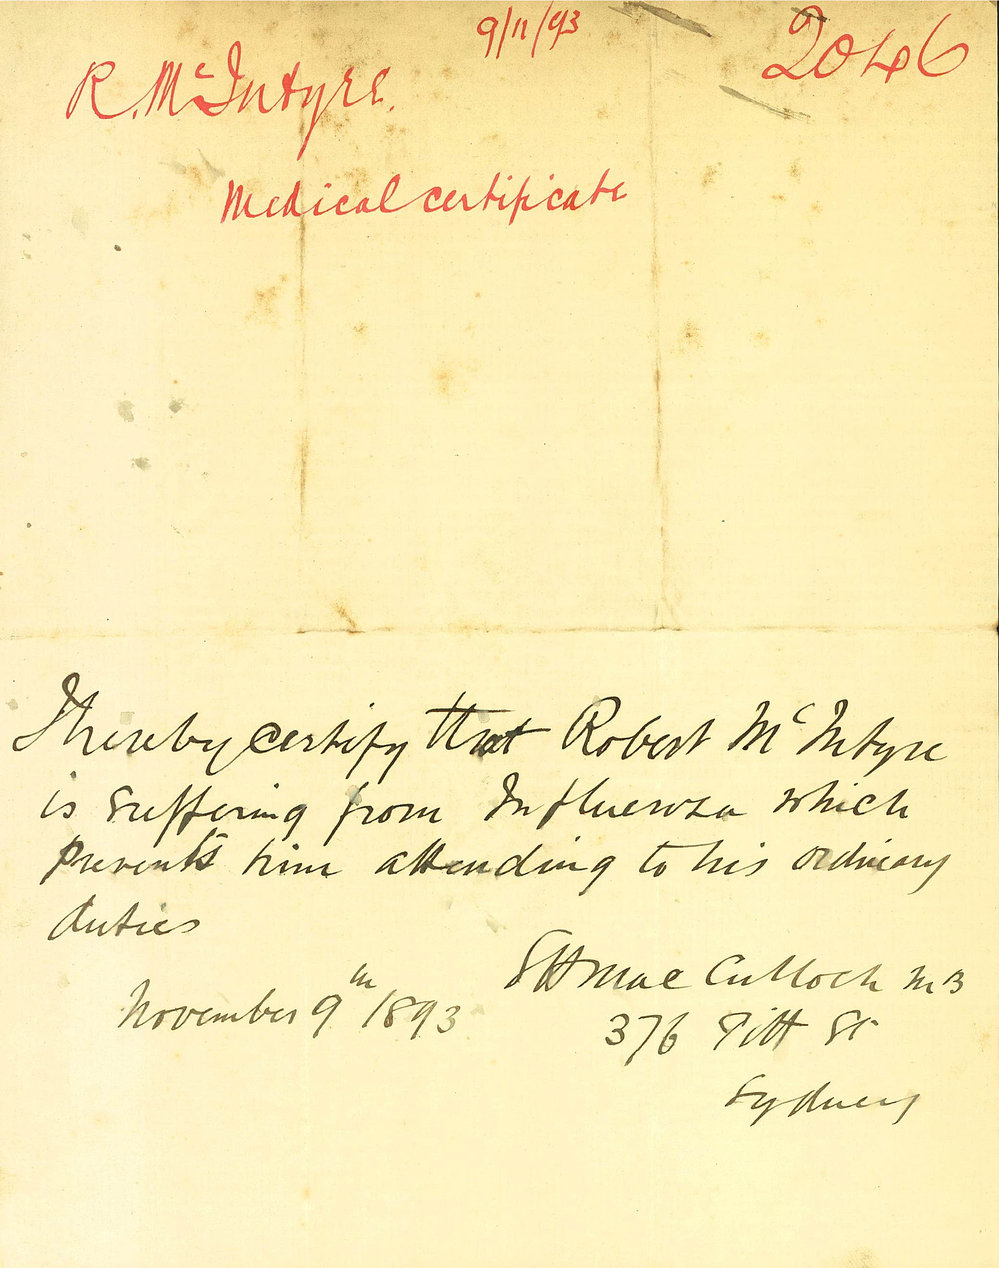 9/11/93
2046
R. McIntyre.
Medical certificate
I hereby certify that Robert McIntyre
is suffering from Influenza which
prevents him attending to his ordinary
duties
S H MacCulloch MB
November 9th 1893
376 Pitt St
Sydney